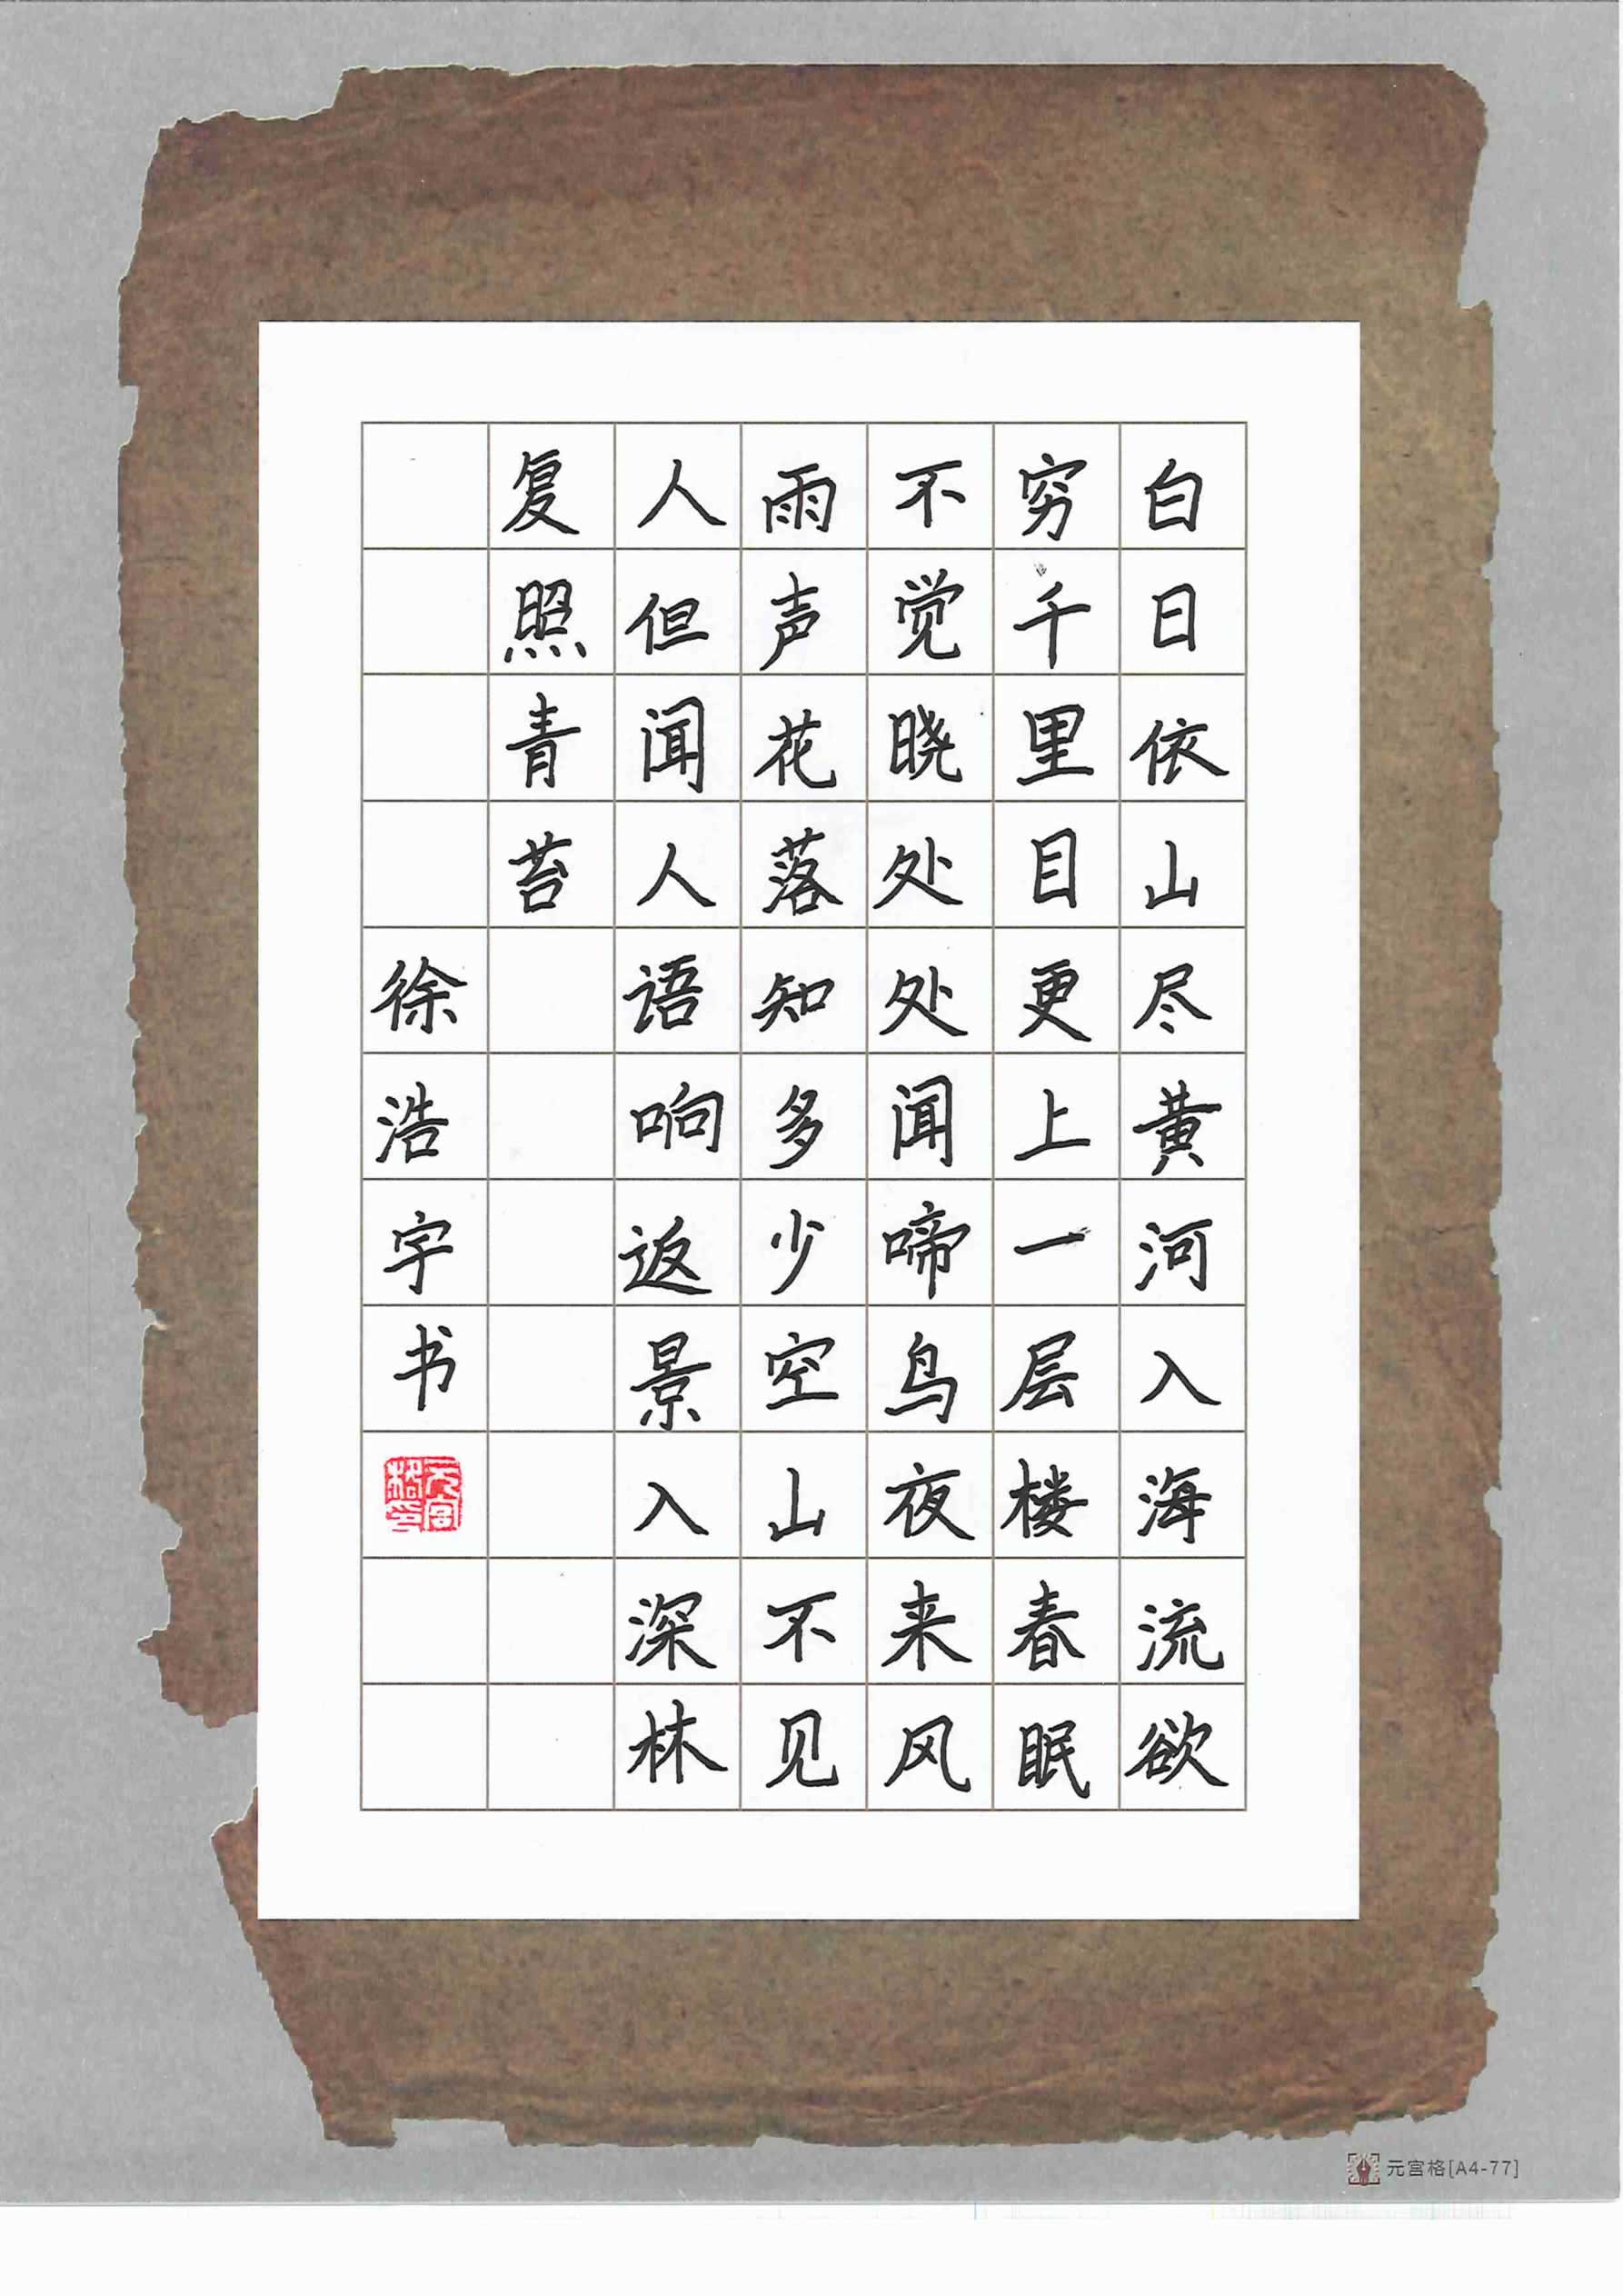 白日依山尽黄河入海流欲
穷千里目更上一层楼春眠
不觉晓处处闻啼鸟夜来风
雨声花落知多少空山不见
人但闻人语响返景入深林
复照青苔
徐浩宇书
元宫格印
元宫格[A4-77]